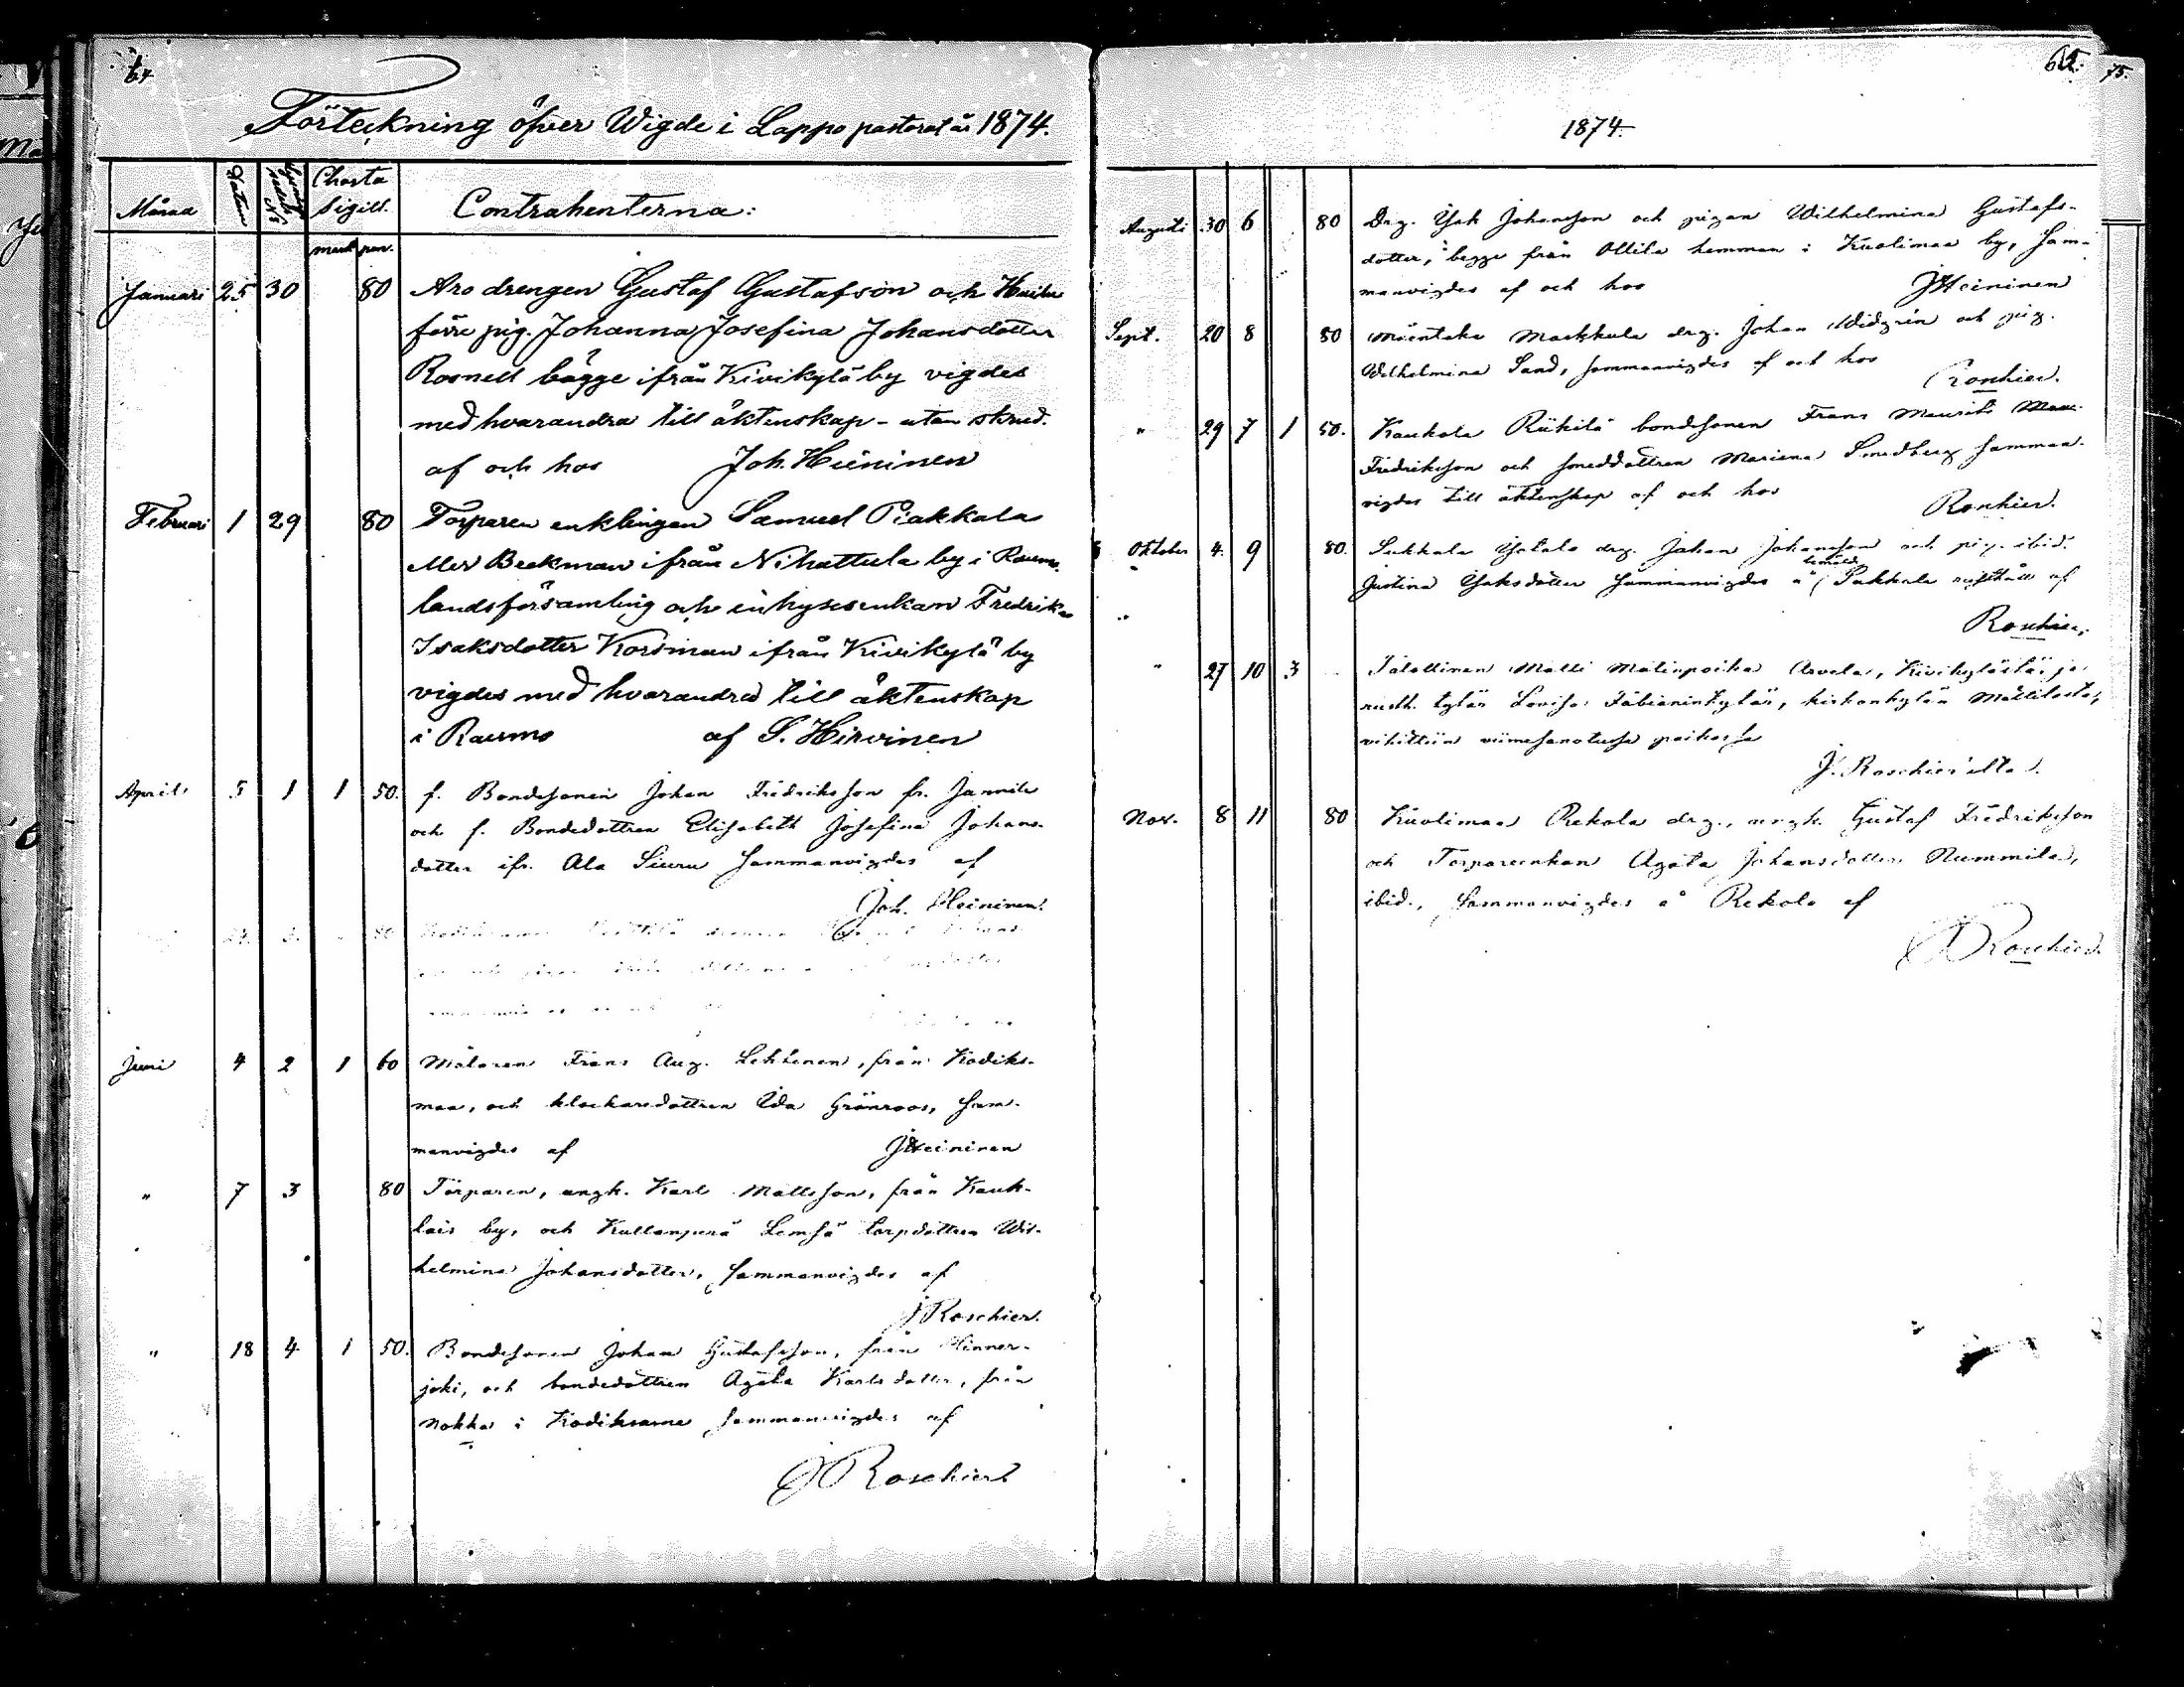 64
Förteckning öfver Wigde i Lappo pastorat år 1874.
Månad Datum Charta Sigill. Contrahenterna:
mark pen.
Januari 25 30 80 Aro drengen Gustaf Gustafson och
förre pig. Johanna Josefina Johansdotter
Rosnell bägge ifrån Kivikylä by vigdes
med hvarandra till äktenskap - utan skrud.
af och hos Joh. Heininen
Februari 1 29 80 Torparen enklingen Samuel Piakkala
eller Beckman ifrån Nihattula by i Raumo
landsförsamling och inhysesenkan Fredrika
Isaksdotter Korsman ifrån Kivikylä by
vigdes med hvarandra till äktenskap
i Raumo af S. Hirvinen
April 5 1 1 50. f. Bondesonen Johan Fredriksson fr. Jannila
och f. Bondedottren Elisabeth Josefina Johans-
dotter ifr. Ala Siuru sammanvigdes af
Joh. Heininen.
Juni 4 2 1 60 Målaren Frans Aug. Lehtinen, från Kodiks-
maa, och klockaredottren Ida Grönroos, sam-
manvigdes af JHeininen
" 7 3 80 Torparen, ungk. Karl Mattsson, från Kauk-
lais by, och Kullanperä Lemsä torpdottren Wil-
helmina Johansdotter, sammanvigdes af
J Roschier.
" 18 4 1 50. Bondesonen Johan Gustafsson, från Hinner-
joki, och bondedottren Agata Karlsdotter, från
Nokka i Kodiksame sammanvigdes af
J Roschier
62. 75.
1874.
Augusti 30 6 80 Drg. Isak Johansson och pigan Wilhelmina Gustafs-
dotter, begge från Ollila hemman i Kuolimaa by, sam-
manvigdes af och hos JHeininen
Sept. 20 8 80 Mäentaka Markkula drg. Johan Widgrén och pig.
Wilhelmina Sand, sammanvigdes af och hos
Roschier.
" 29 7 1 50. Kaukola Riikilä bondesonen Frans Maurits
Fredriksson och smeddottren Mariana Smedberg samman-
vigdes till äktenskap af och hos
Roschier.
Oktober 4. 9 80. Sukkala drg. Johan Johansson och pig. ibid.
Justina Isaksdotter sammanvigdes å Sukkala af
Roschier.
" 27 10 3 Talollinen Matti Matinpoika Arvela, Kivikylästä, ja
tytär Lovisa Fabianintytär, kirkonkylän Mattilasta,
vihittiin viimesanotussa paikassa
J. Roschier'ilta.
Nov. 8 11 80 Kuolimaa Rekola drg., ungk. Gustaf Fredriksson
och Torpareenkan Agata Johansdotter Nummila,
ibid., sammanvigdes å Rekola af
J Roschier.